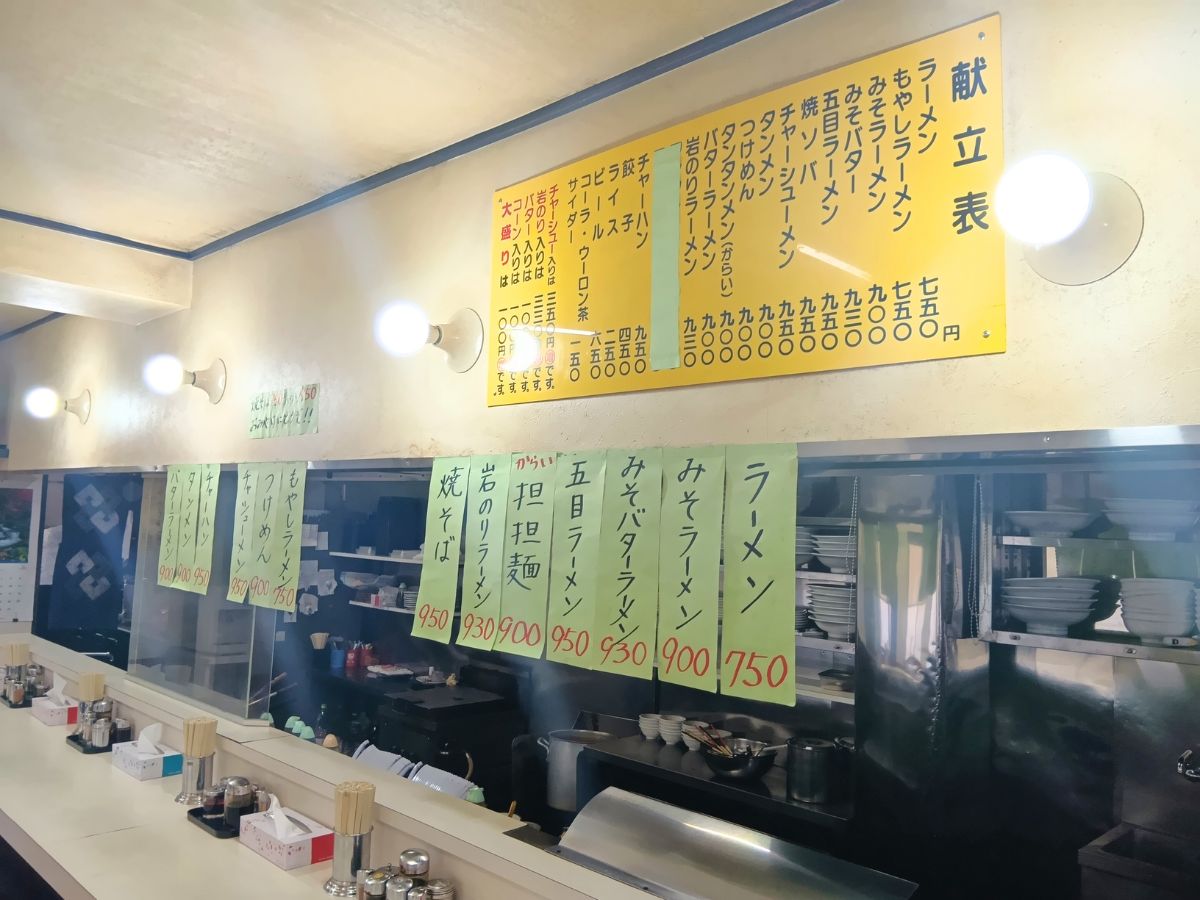 献立表
ラーメン 七五〇円
もやしラーメン 七五〇
みそラーメン 九〇〇
みそバター 九三〇
五目ラーメン 九五〇
焼ソバ 九五〇
チャーシューメン 九五〇
タンメン 九〇〇
つけめん 九〇〇
タンタンメン(からい) 九〇〇
バターラーメン 九〇〇
岩のりラーメン 九三〇
チャーハン 九五〇
餃子 四五〇
ライス 二五〇
ビール 六五〇
コーラ・ウーロン茶
サイダー 一五〇
チャーシュー入りは 三五〇円増です。
岩のり入りは 円増です。
バター入りは 円増です。
コーン入りは 一〇〇円増です。
大盛りは 一〇〇円増です。
ラーメン 750
みそラーメン 900
みそバターラーメン 930
五目ラーメン 950
からい
担担麺 900
岩のりラーメン 930
焼そば 950
もやしラーメン 750
つけめん 900
チャーシューメン 950
チャーハン 950
タンメン 900
バターラーメン 900